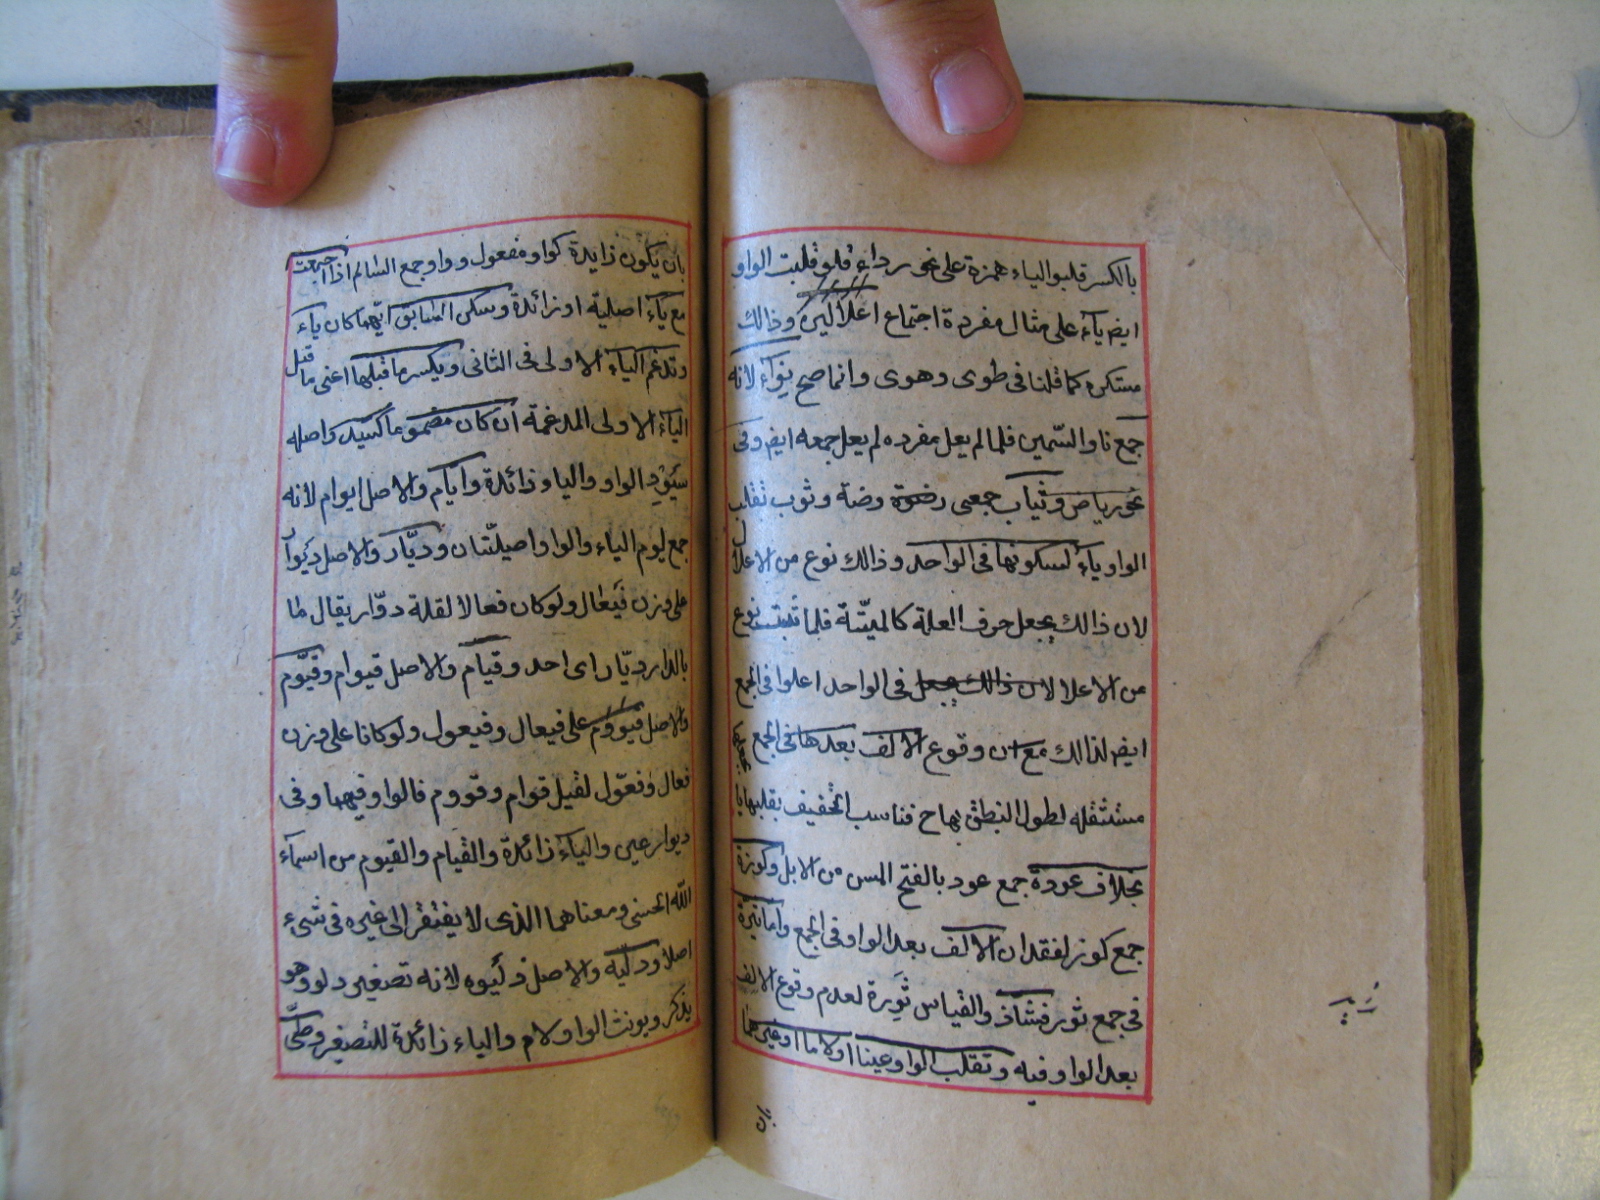 بالكسر قلبوا الياء همزة على نحو رداء فلو قلبت الواو
ايضا ياء على مثال مفردة اجتماع اعلالين وذالك
مستكره كما قلنا فى طوى وهوى وانما صح نواء لانه
جمع ناو السّمين فلما لم يعل مفرده لم يعل جمعه ايضا وفى
نحو رياض وثياب جمعى روضة وثوب تقلب
الواو ياء لسكونها فى الواحد وذالك نوع من الاعلال
لان ذالك يجعل حرف العلة كالميّتة فلما ثبت نوع
من الاعلال لان ذالك يجعل فى الواحد اعلوا فى الجمع
ايضا لذالك مع ان وقوع الالف بعدها فى الجمع يجعلها
مستثقله لطول النطق بهاح فناسب التخفيف بقلبها يا
بخلاف عودة جمع عود بالفتح المسن من الابل وكوزة
جمع كوز لفقدان الالف بعد الواو فى الجمع واما ثيرة
فى جمع ثور فشاذ والقياس ثورة لعدم وقوع الالف
بعد الواو فيه وتقلب الواو عينا اولاما اوغيرهما
بان
بان يكون زايدة كواو مفعول وواو جمع السالم اذا اجتمعت
مع ياء اصلية او زائدة وسكن السابق ايّهما كان ياء
وتدغم الياء الاولى فى الثانى ويكسر ما قبلها اعنى ما قبل
الياء الاولى المدغمة ان كان مضموما كسيد واصله
سَيْوِد الواو والياء زائدة وايّام والاصل ايوام لانه
جمع ليوم الياء والواو اصيلتان وديّار والاصل ديوار
على وزن فَيْعال ولو كان فعالا لقلة دوّار يقال ما
بالدار ديّار اى احد وقيام والاصل قيوام وقيّوم
والاصل قيووم على فيعال وفيعول ولو كانا على وزن
فعال وفعّول لقيل قوام وقووم فالواو فيهما وفى
ديوار عين والياء زائدة والقيام والقيوم من اسماء
اللّه الحسنى ومعناهما الذى لا يفتقر الى غيره فى شىء
اصلا ودليّه والاصل دليوه لانه تصغير دلو وهو
يذكر ويونث الواو لام والياء زائدة للتصغير وطىّ